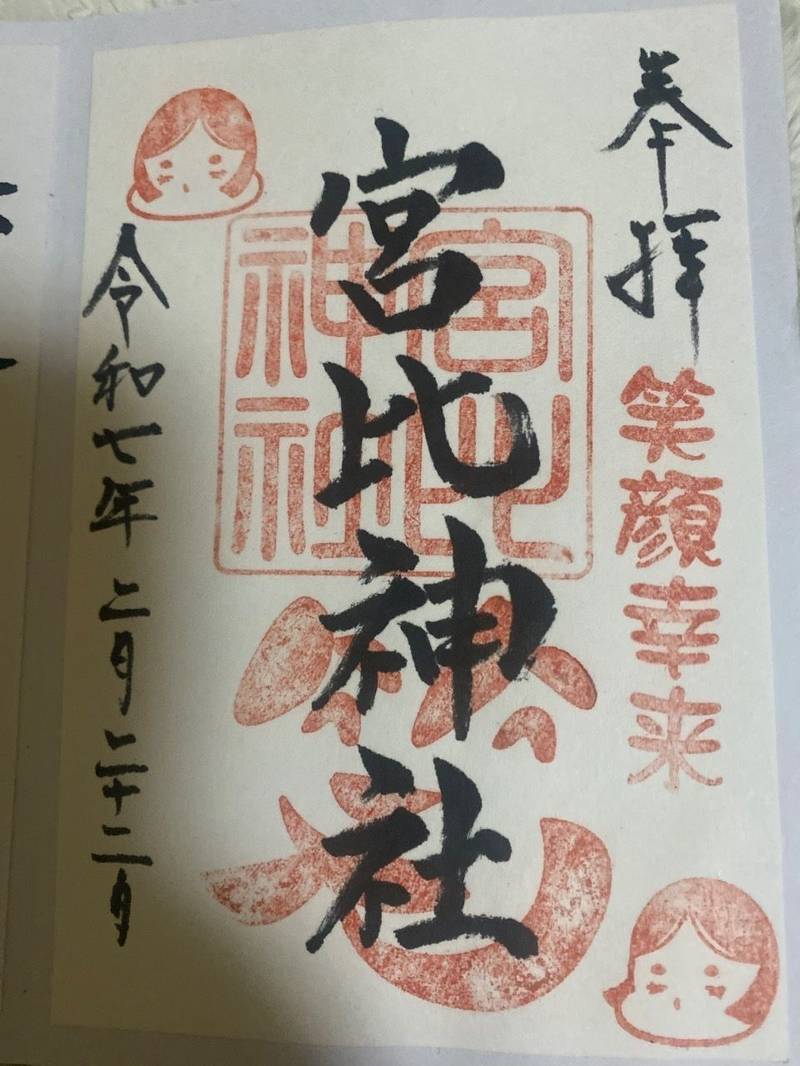 奉拝
笑顔幸来
宮比神社
宮比
神社
令和七年 二月二十二日